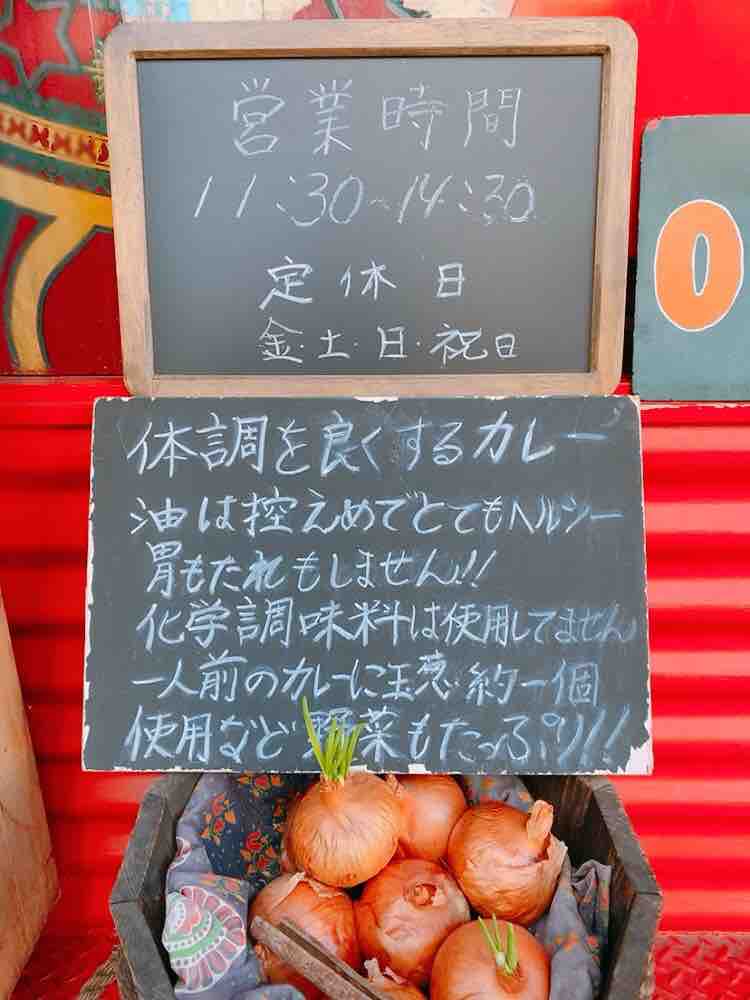 営業時間
11:30~14:30
定休日
金・土・日・祝日
0
体調を良くするカレー
油は控えめでとてもヘルシー
胃もたれもしません!!
化学調味料は使用してません
一人前のカレーに玉葱約一個
使用など野菜もたっぷり!!